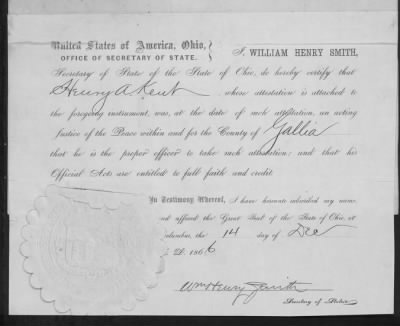 United States of America, Ohio,
OFFICE OF SECRETARY OF STATE.
I, WILLIAM HENRY SMITH,
Secretary of State of the State of Ohio, do hereby certify that
Henry A Kent, whose attestation is attached to
the foregoing instrument, was, at the date of such attestation, an acting
Justice of the Peace within and for the County of Gallia
that he is the proper officer to take such attestation; and that his
Official Acts are entitled to full faith and credit
In Testimony Whereof, I have hereunto subscribed my name,
and affixed the Great Seal of the State of Ohio, at
Columbus, the 14 day of Dec
D. 1866
Wm Henry Smith
Secretary of State